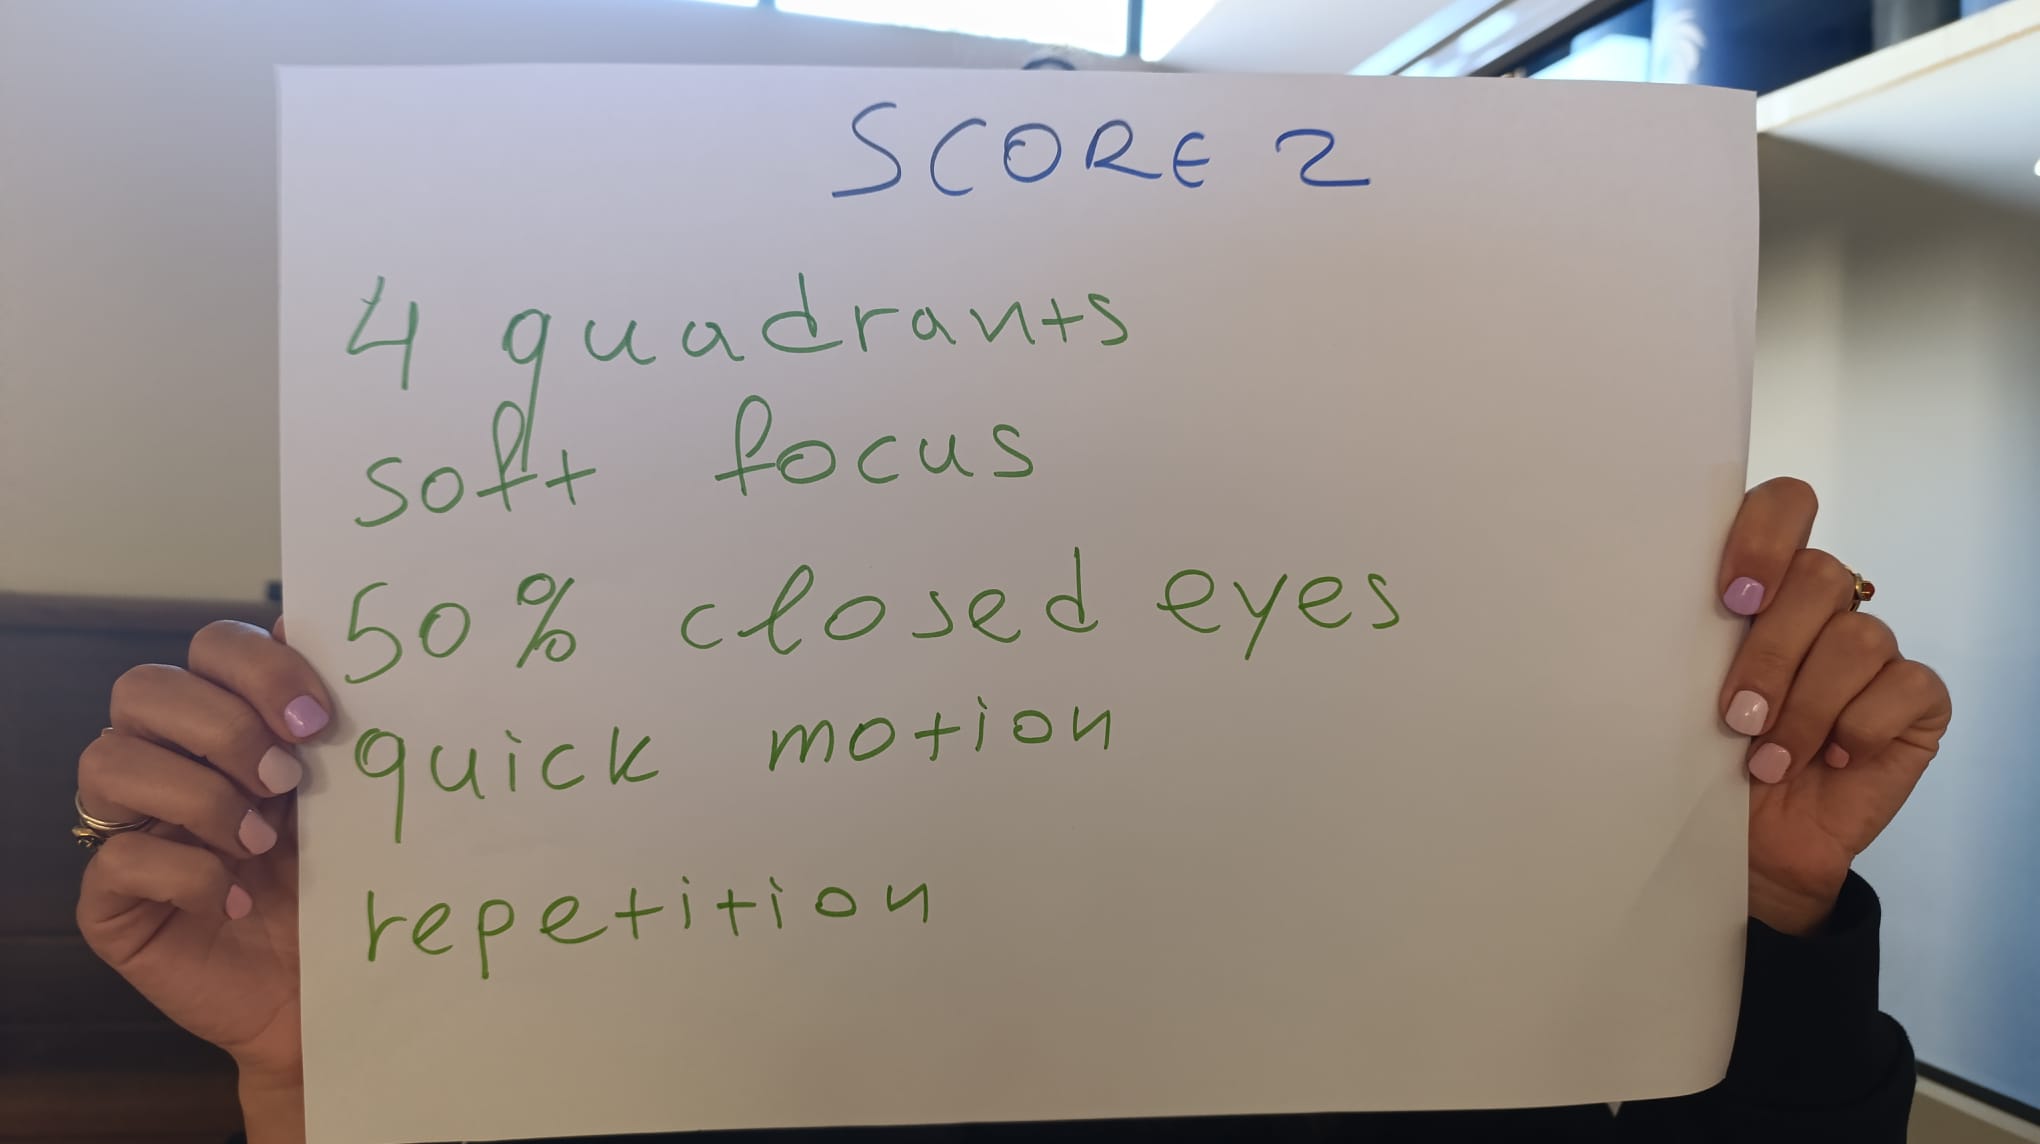 SCORE 2
4 quadrants
soft focus
50% closed eyes
quick motion
repetition